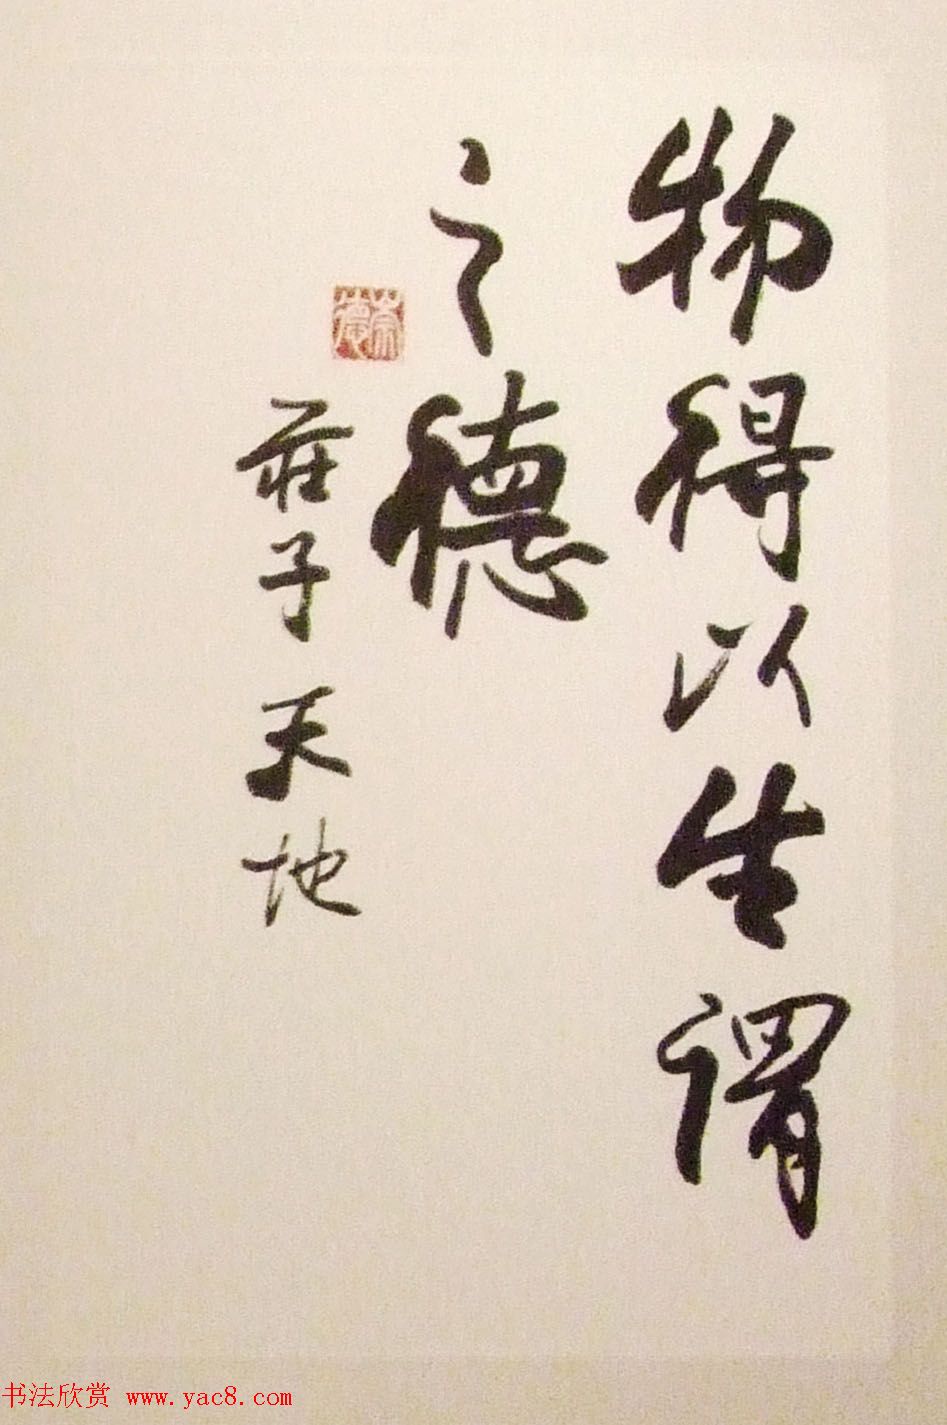 物得以生谓
之德
莊子天地
崇德
书法欣赏 www.yac8.com